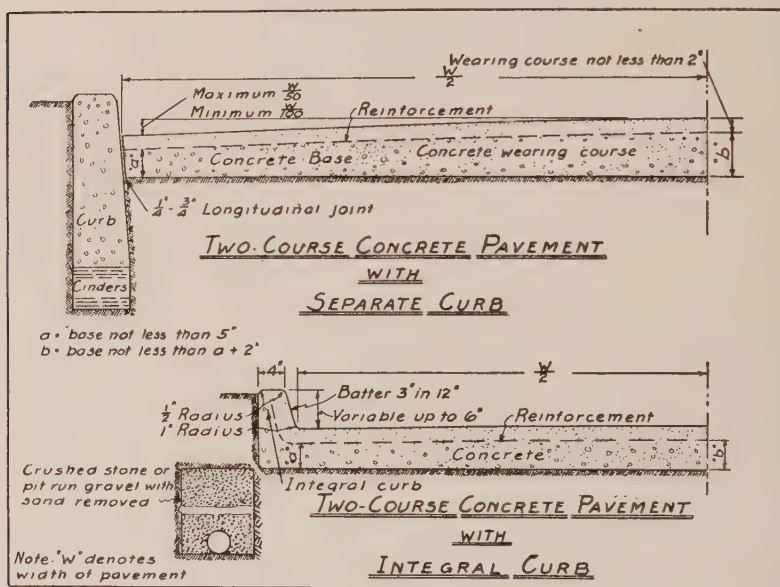 Wearing course not less than 2"
W/2
Maximum W/50
Minimum W/100
Reinforcement
"a"
Concrete Base
Concrete wearing course
"b"
1/4" - 3/4" Longitudinal joint
Curb
Cinders
TWO-COURSE CONCRETE PAVEMENT
WITH
SEPARATE CURB
a = base not less than 5"
b = base not less than a + 2"
4"
W/2
Batter 3" in 12"
1/2" Radius
Variable up to 6"
1" Radius
Reinforcement
"a"
Concrete
"b"
Crushed stone or
pit run gravel with
sand removed
Integral curb
TWO-COURSE CONCRETE PAVEMENT
WITH
INTEGRAL CURB
Note. "W" denotes
width of pavement